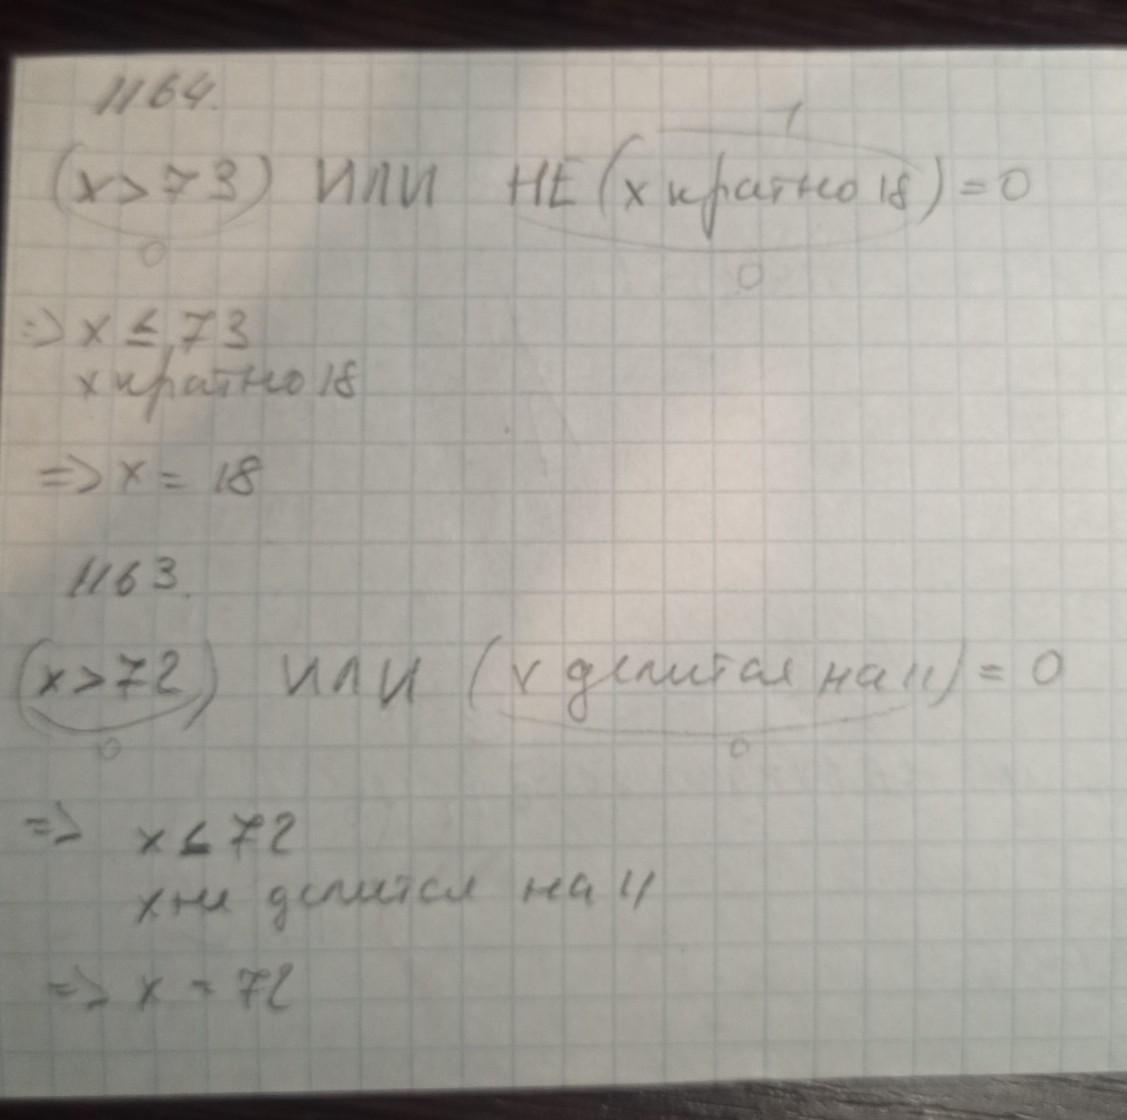 1164.
1
(x > 73) ИЛИ НЕ (x кратно 18) = 0
0 0
=> x ≤ 73
x кратно 18
=> x = 18
1163.
(x > 72) ИЛИ (x делится на 11) = 0
0 0
=> x ≤ 72
x не делится на 11
=> x = 72